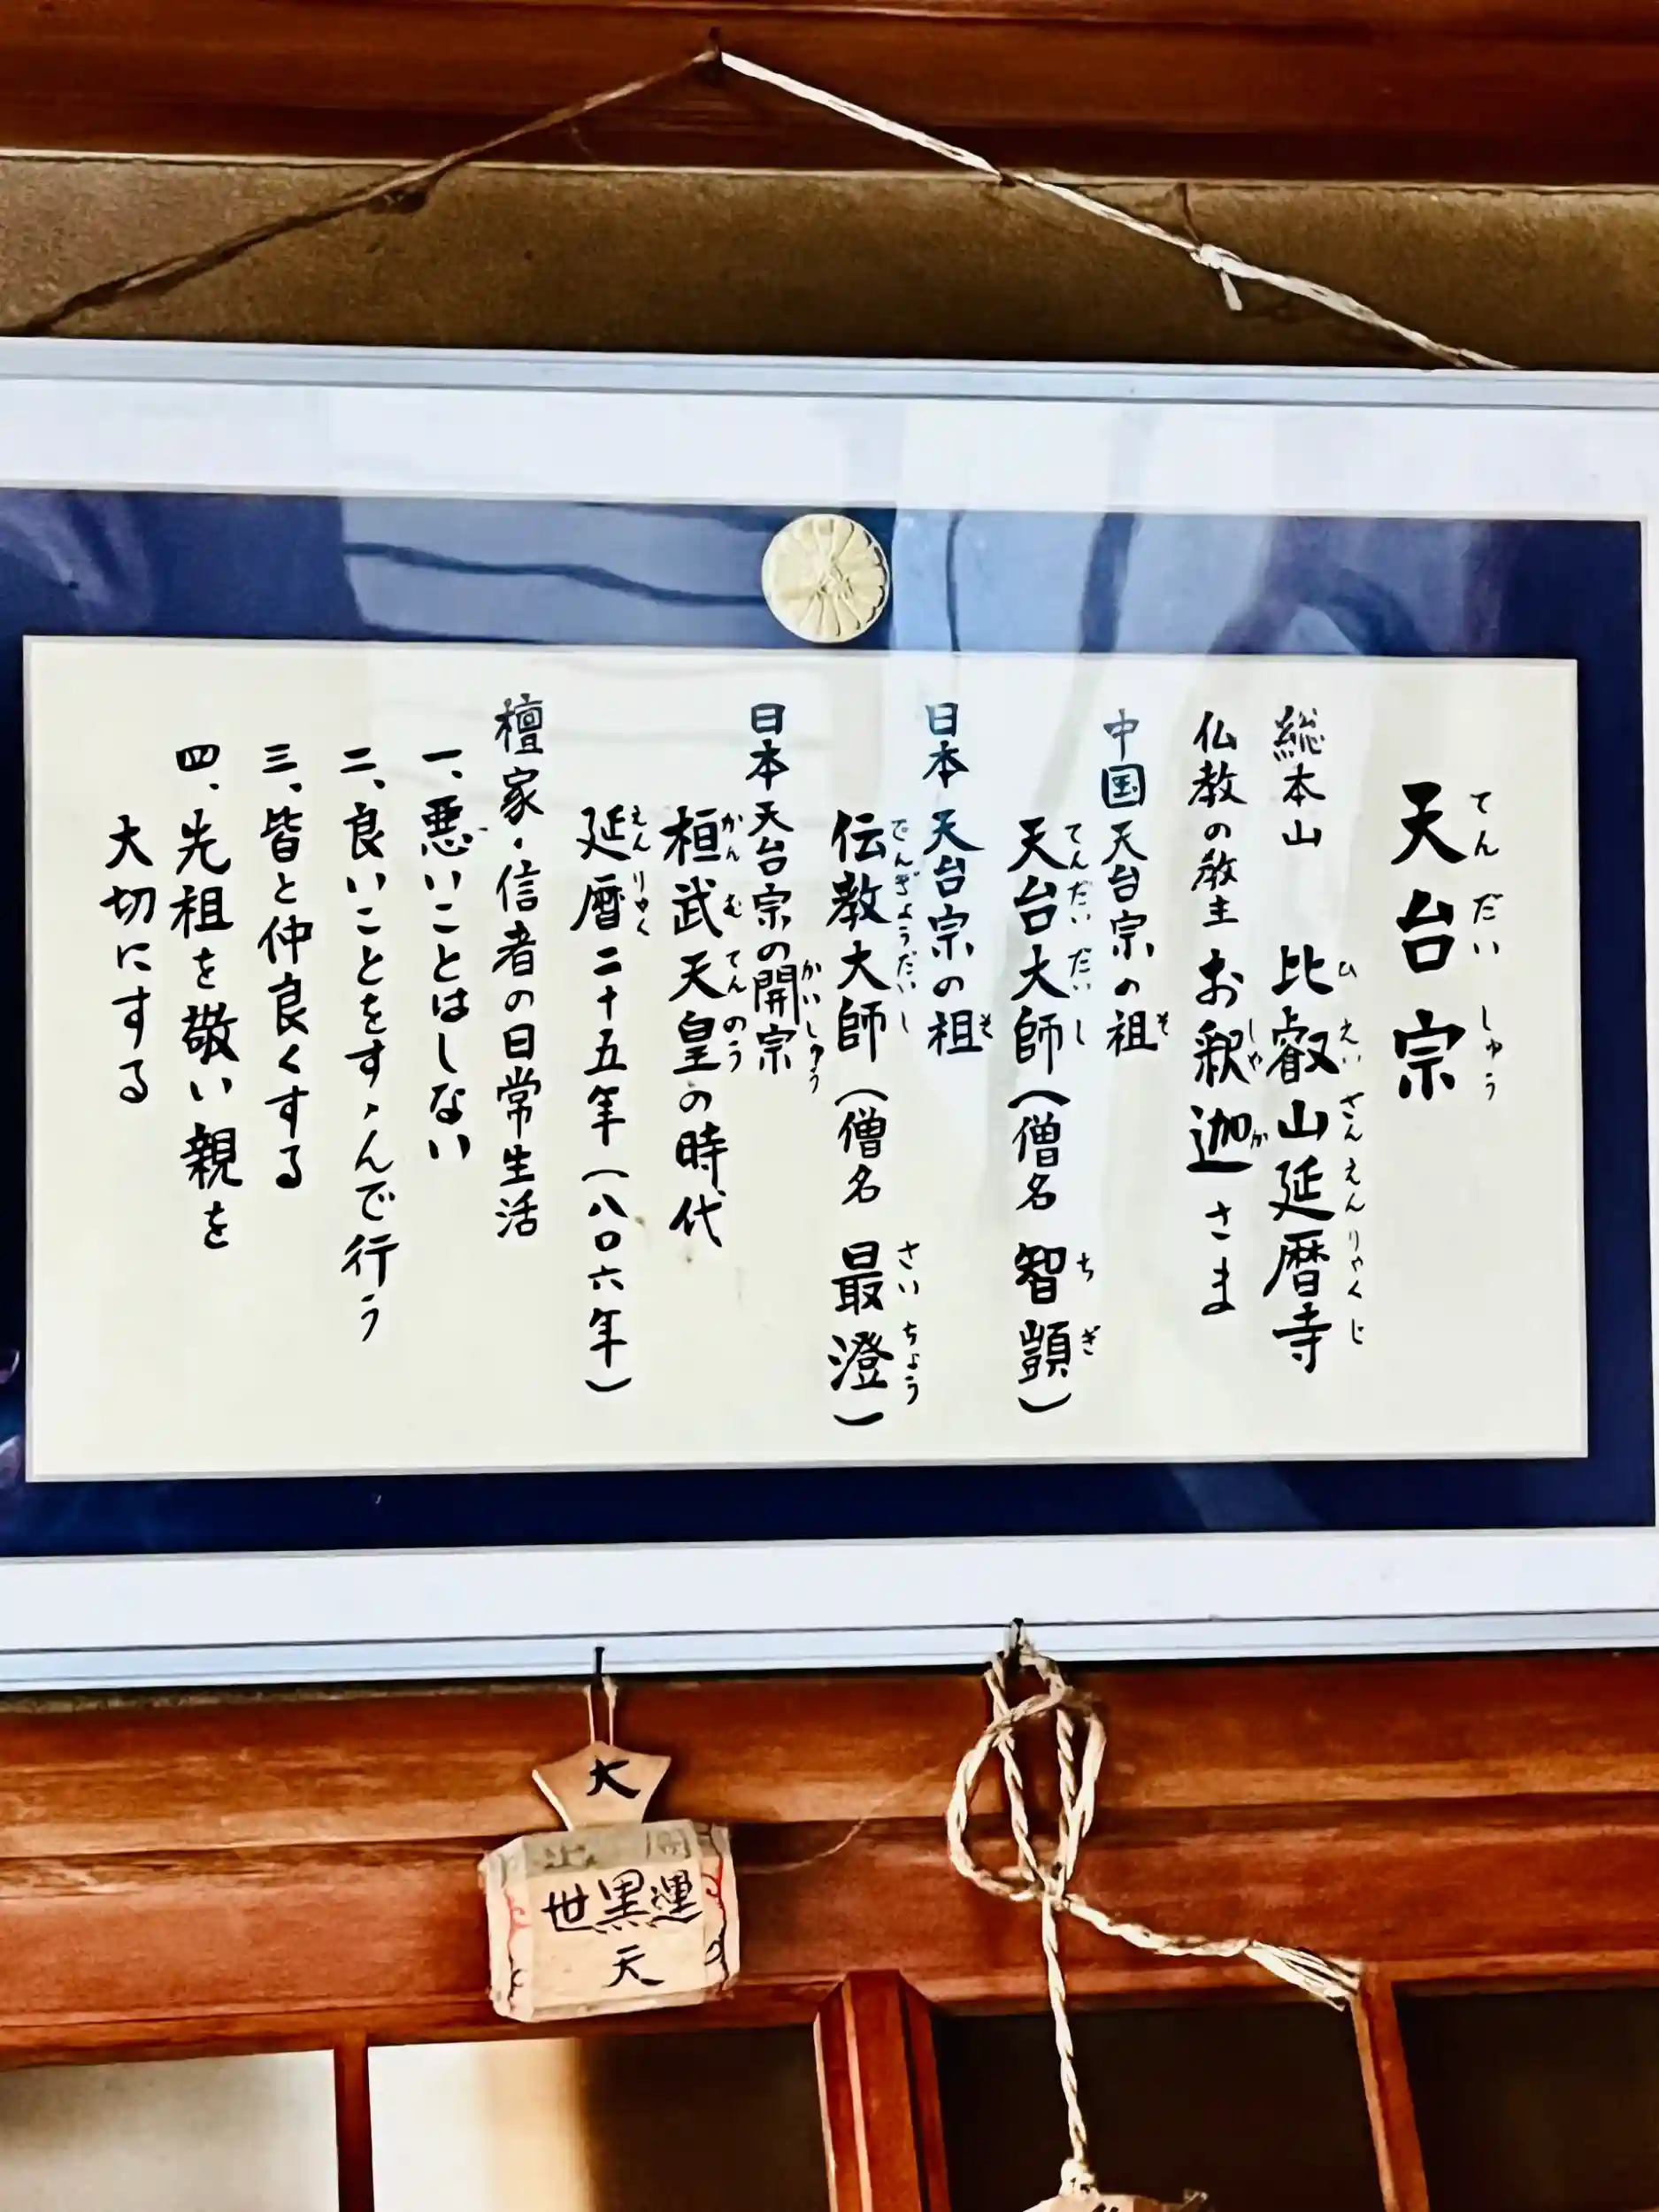 天台宗
てんだいしゅう
総本山 比叡山延暦寺
ひえいざんえんりゃくじ
仏教の教主 お釈迦さま
しゃか
中国天台宗の祖
そ
天台大師(僧名 智顗)
てんだいだいし ちぎ
日本天台宗の祖
そ
伝教大師(僧名 最澄)
でんぎょうだいし さいちょう
日本天台宗の開宗
かいしゅう
桓武天皇の時代
かんむてんのう
延暦二十五年(八〇六年)
えんりゃく
檀家・信者の日常生活
一、悪いことはしない
二、良いことをすゝんで行う
三、皆と仲良くする
四、先祖を敬い親を
大切にする
大
世黒運
天